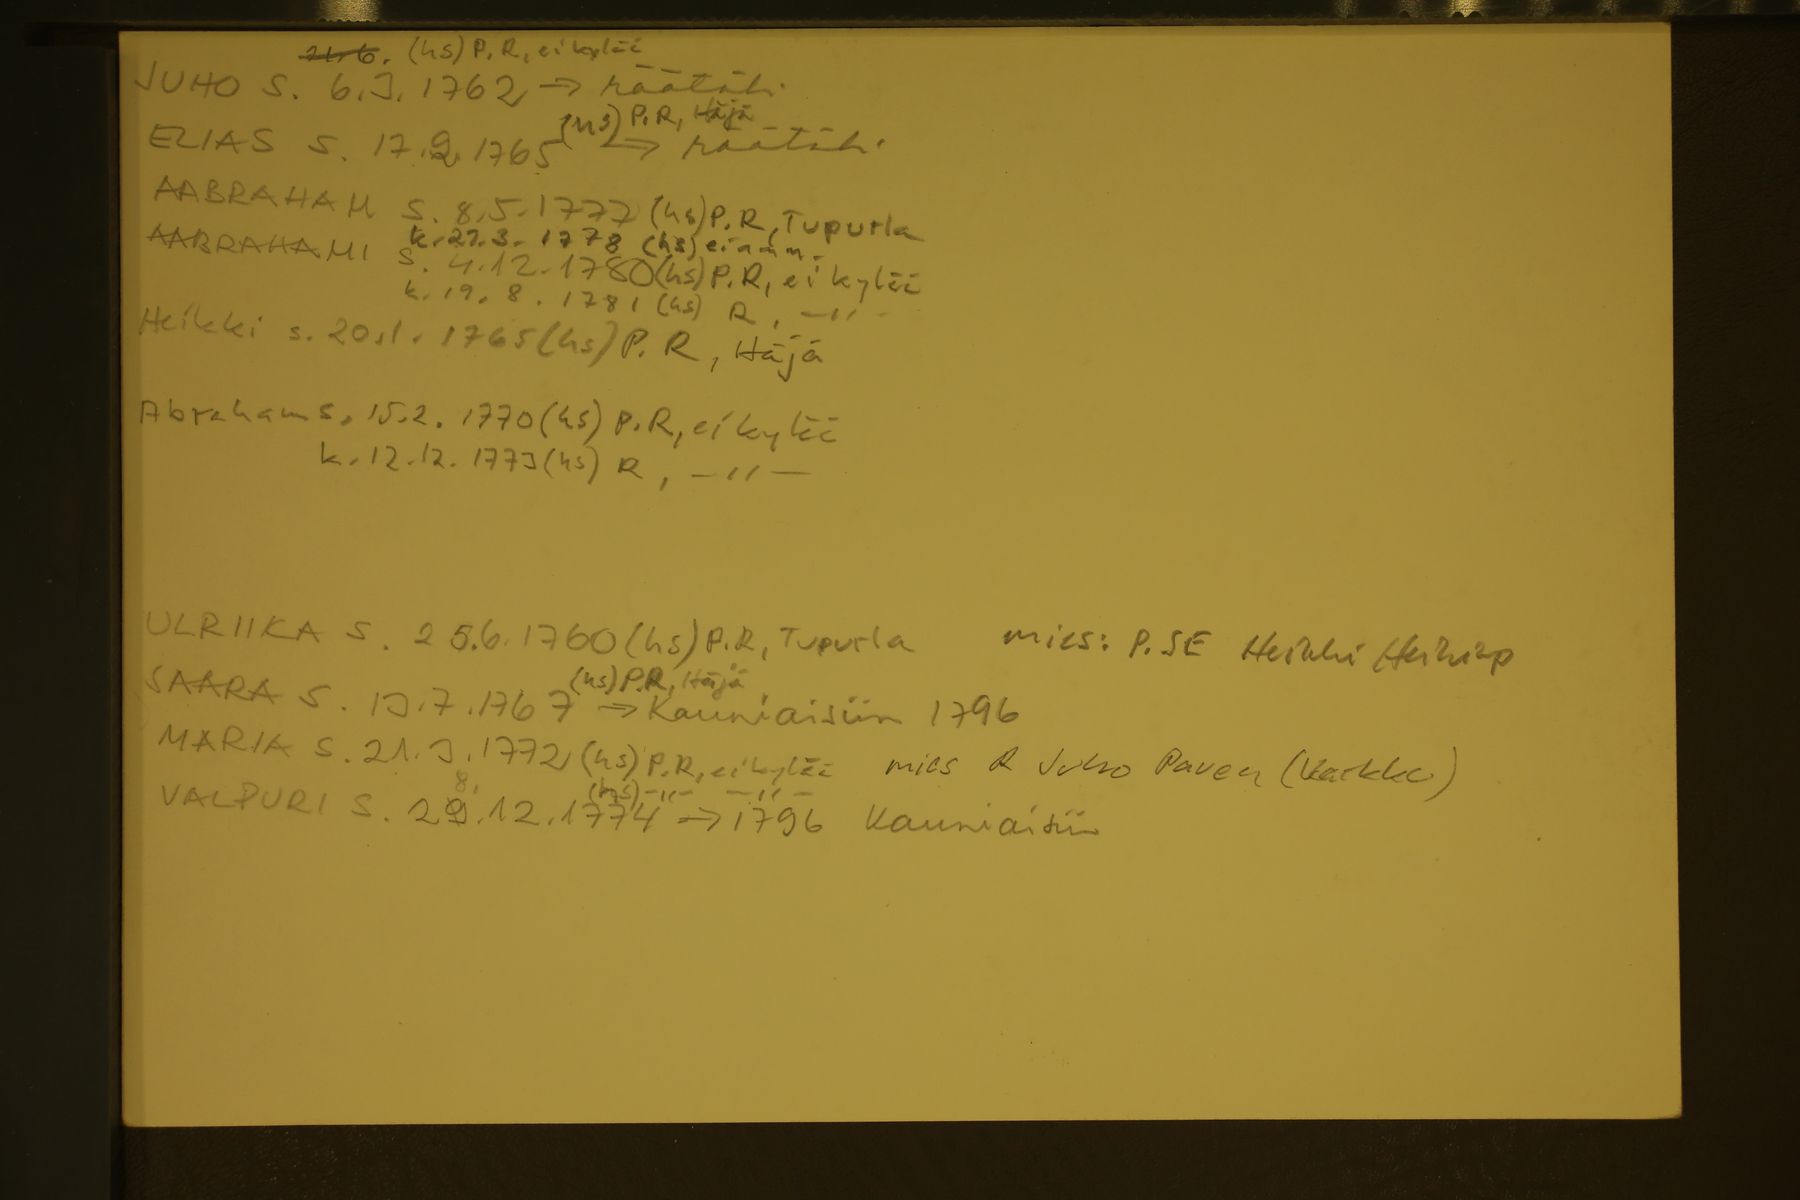 (hs) P. R, ei kylää
JUHO S. 6.3.1762 → räätäli
(hs) P.R, Häjä
ELIAS S. 17.2.1765 → räätäli
AABRAHAM S. 8.5.1777 (hs) P.R, Tupurla
k. 27.3. 1778 (hs)
AABRAHAMI S. 4.12.1780 (hs) P.R, ei kylää
k. 19. 8. 1781 (hs) R, —"—
Heikki s. 20.1. 1765 (hs) P. R, Häjä
Abraham s. 15.2. 1770 (hs) P.R, ei kylää
k. 12.12. 1773 (hs) R, —"—
ULRIIKA S. 25.6.1760 (hs) P.R, Tupurla mies: P.SE Heikki Heikinp
(hs) P.R, Häjä
SAARA S. 13.7.1767 → Kauniaisiin 1796
MARIA S. 21.3.1772 (hs) P.R, ei kylää mies R Juho Paven (Karkku)
8. (hs) —"— —"—
VALPURI S. 29.12.1774 → 1796 Kauniaisiin